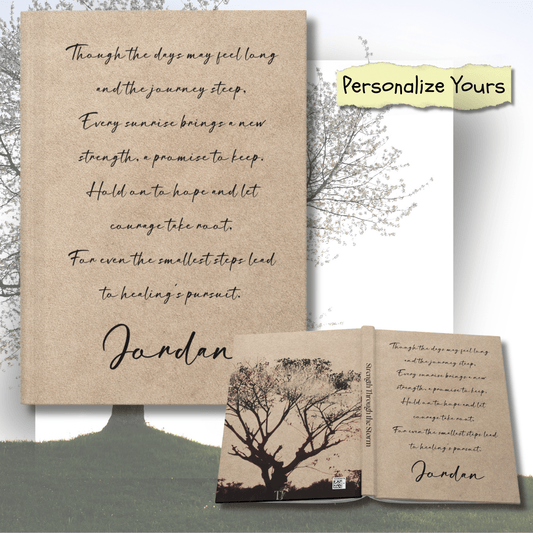 Though the days may feel long
and the journey steep,
Every sunrise brings a new
strength, a promise to keep.
Hold on to hope and let
courage take root,
For even the smallest steps lead
to healing's pursuit.
Jordan
Personalize Yours
Strength Through the Storm
Though the days may feel long
and the journey steep,
Every sunrise brings a new
strength, a promise to keep.
Hold on to hope and let
courage take root,
For even the smallest steps lead
to healing's pursuit.
Jordan